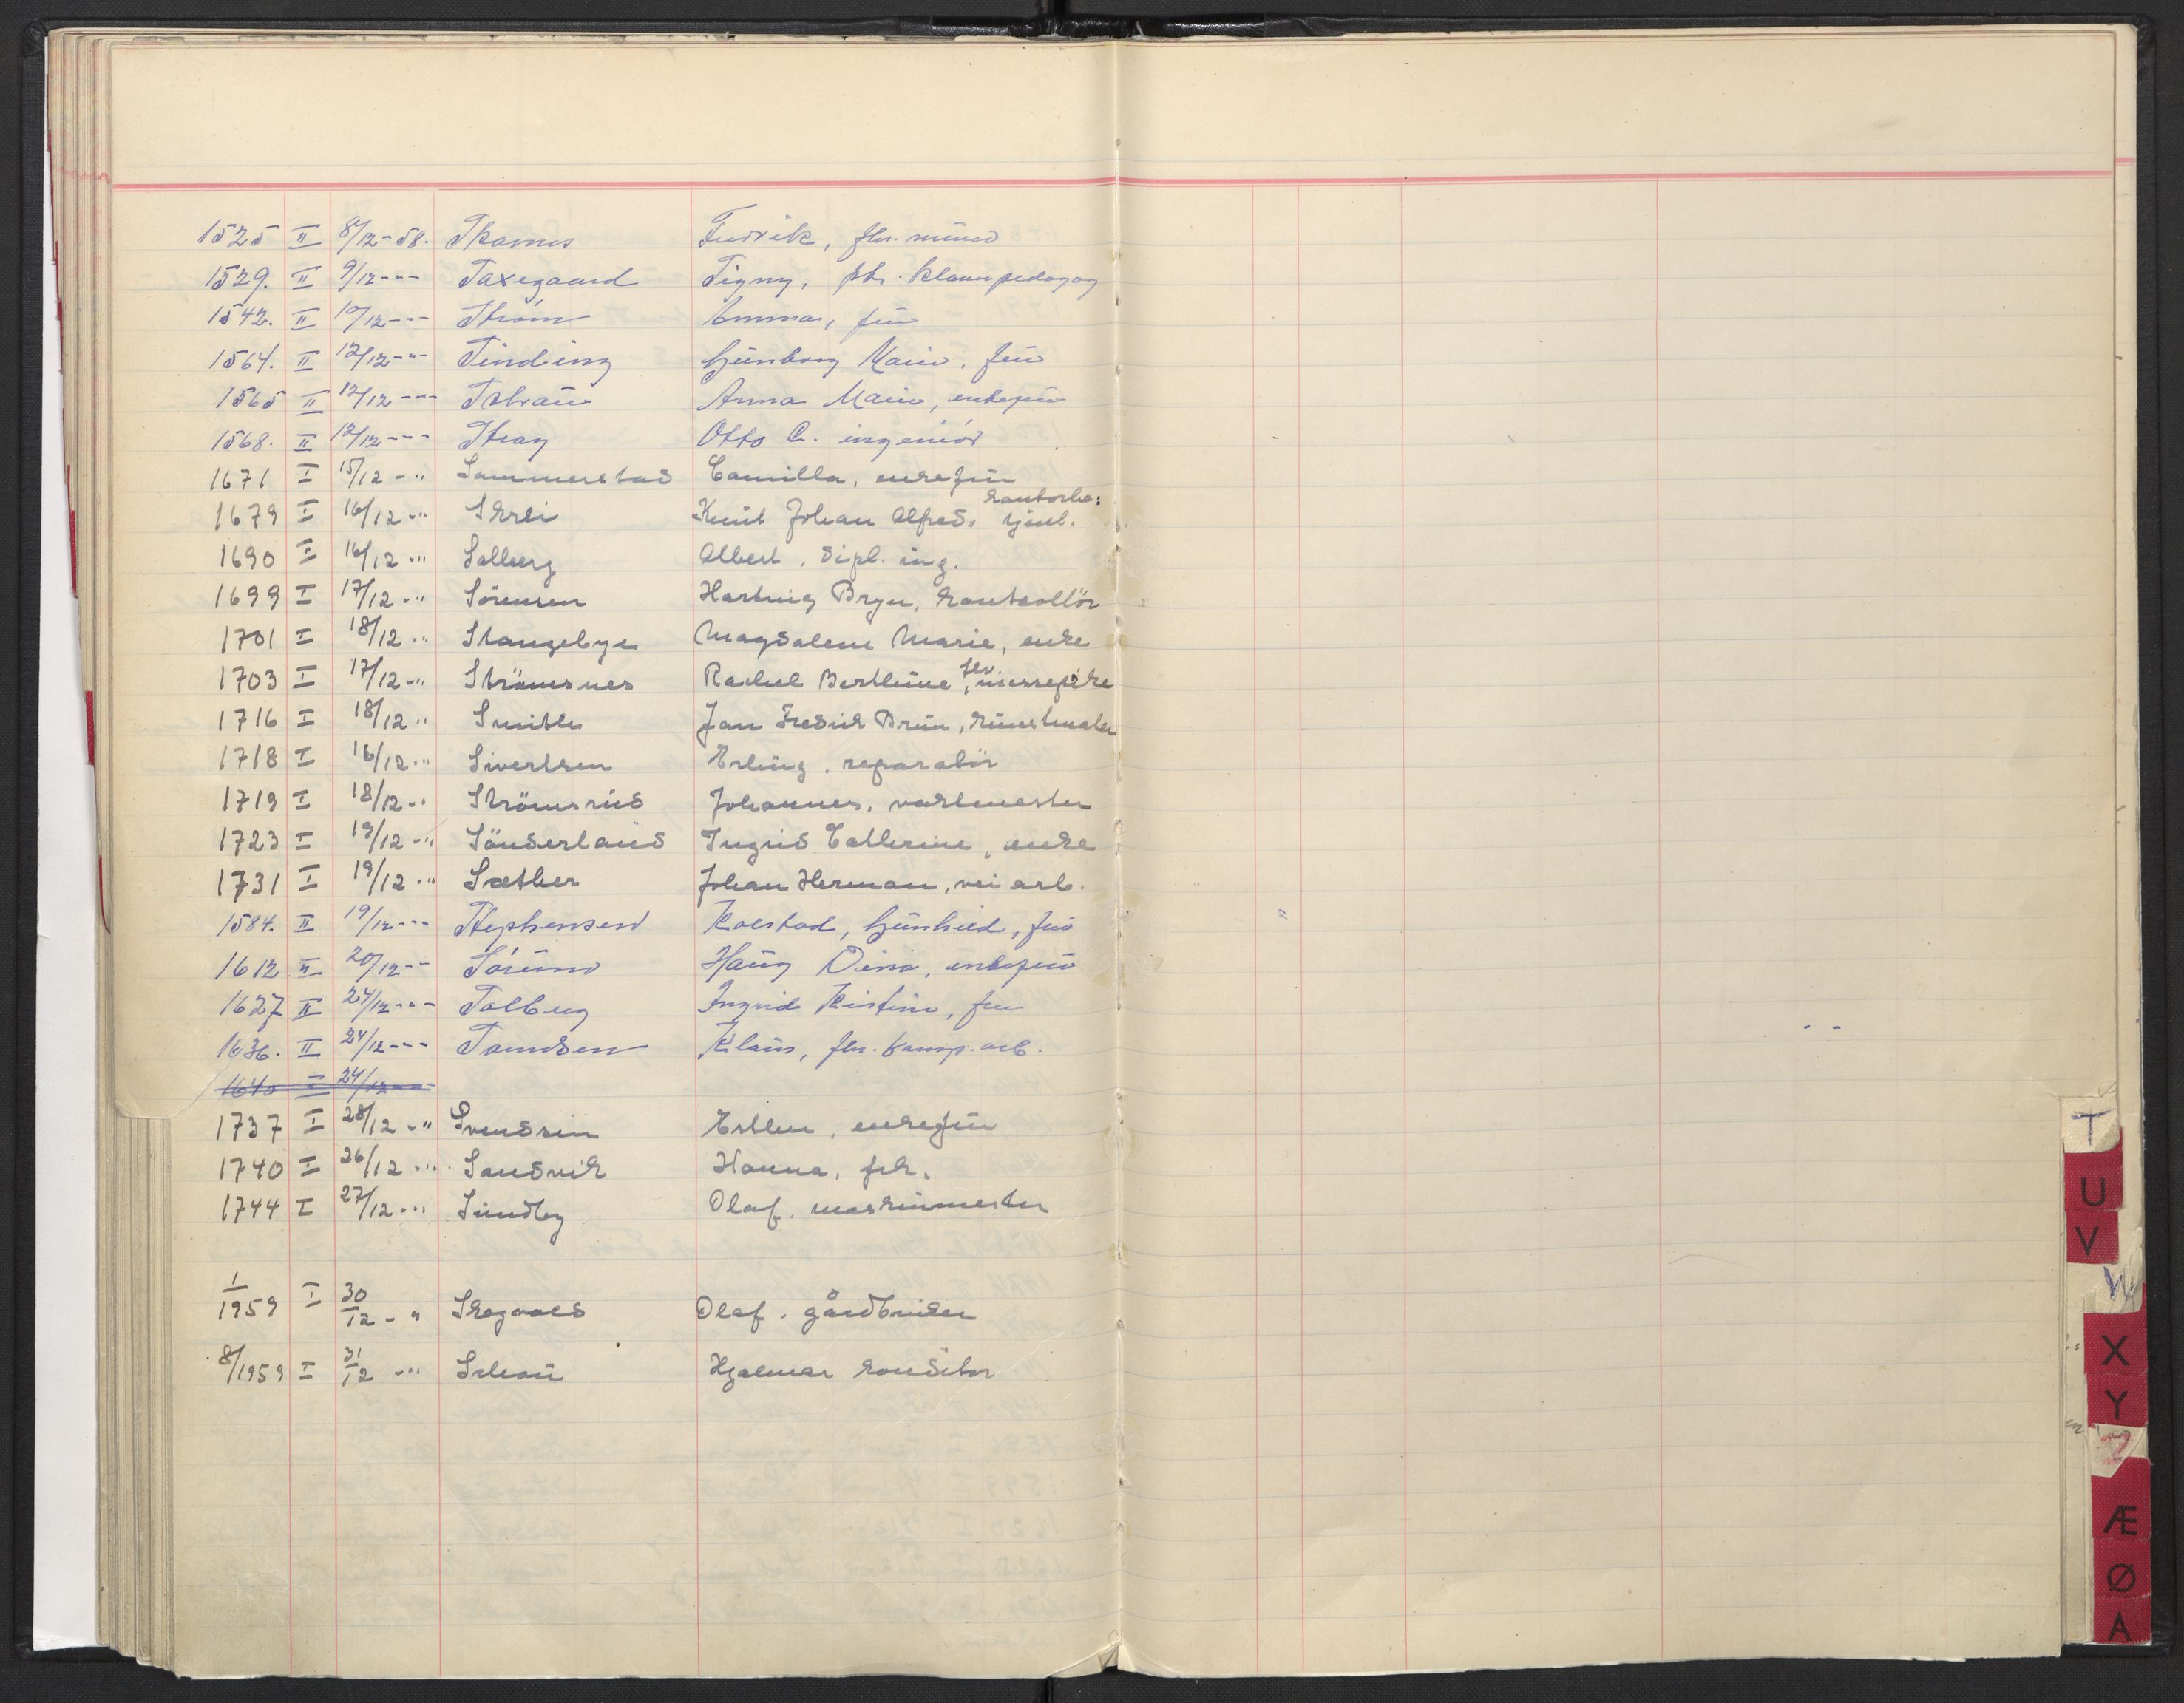 1525 II 8/12-58. Skarnes Fredrik, fhv. murer
1529. II 9/12-"- Saxegaard Signy, fhv. klaverpedagog
1542. II 10/12-"- Strøm Emma, fru
1564. II 12/12-"- Sinding Gunborg Marie, fru
1565 II 12/12-"- Schau Anna Marie, enkefru
1568. II 12/12-"- Stray Otto C. ingeniør
1671 I 15/12-" Sommerstad Camilla, enkefru
kontorbe:
1679 I 16/12-" Skrei Knut Johan Alfred, tjent.
1690 I 16/12-" Solberg Albert, dipl. ing.
1699 I 17/12-" Sörensen Hartvig Bryn, kontrollör
1701 I 18/12-" Stangebye Magdalene Marie, enke
fhv.
1703 I 17/12-" Strömsnes Rachel Berthine, messepike
1716 I 18/12-" Smith Jan Fredrik Brun, kunstmaler
1718 I 16/12-" Sivertsen Erling, reparatör
1719 I 18/12-" Strömsrud Johannes, vaktmester
1723 I 19/12-" Sönderland Ingrid Cathrine, enke
1731 I 19/12-" Sæther Johan Herman, vei arb.
1584. II 19/12-"- Stephensen Kolstad, Gunhild, fru
1612 II 20/12-"- Sörum Haug Dina, enkefru
1627 II 24/12-"- Solberg Ingrid Kristine, fru
1636. II 24/12-"- Svendsen Klaus, fhv. komp. arb.
1640 II 24/12-"-
1737 I 28/12-" Svendsen Esther, enkefru
1740 I 26/12-" Sandvik Hanna, frk.
1744 I 27/12-" Sundby Olaf, maskinmester
1/1959 I 30/12-" Skogvold Olaf, gårdbruker
8/1959 I 31/12-" Schau Hjalmar konditor
T
U
V
W
X
Y
Z
Æ
Ø
A